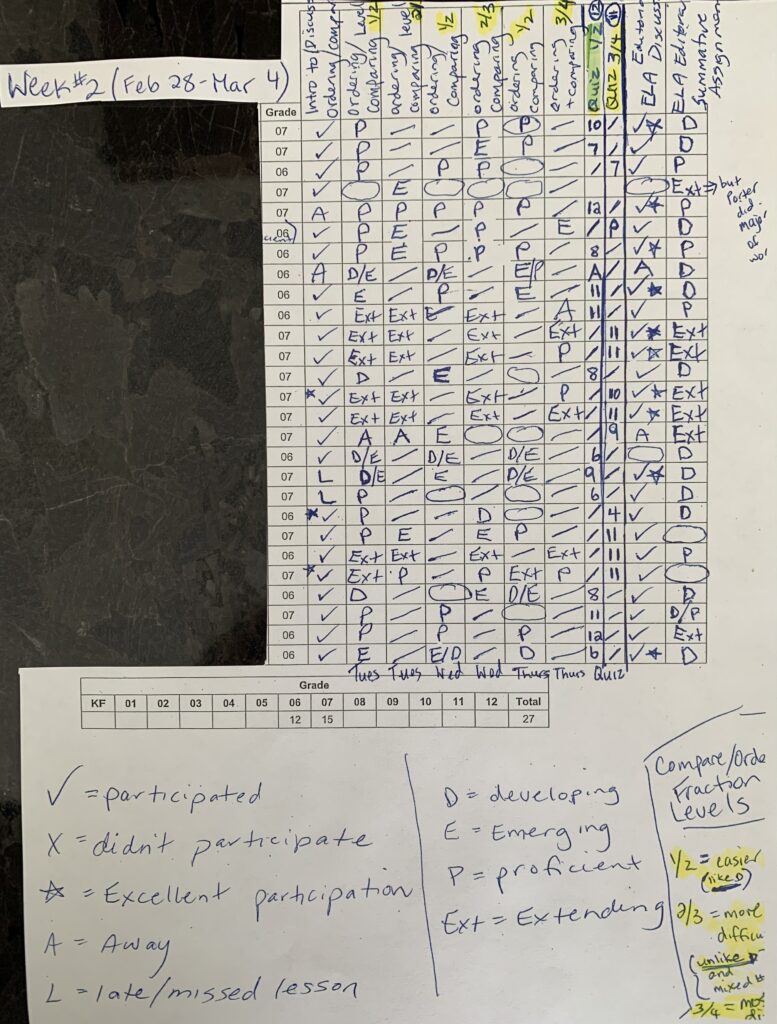 Week #2 (Feb 28 - Mar 4)
Grade
Intro to/Discuss Ordering/Compar
Ordering/Level Comparing 1/2
ordering/level comparing 2/
ordering/ Comparing 1/2
ordering/ comparing 2/3
ordering/ comparing 1/2
ordering + comparing 3/4
Quiz 1/2 (12)
Quiz 3/4 (11)
Editoria ELA Discuss
ELA Editoria Summative Assignmen
07 ✓ P / / P P / 10 / ✓★ D
07 ✓ P / / E P / 7 / ✓ D
06 ✓ P / P P / 7 ✓ P
07 ✓ E / Ext → but Porter did major of wor
07 A P P P P P / 12 / ✓★ P
06 ✓ P E / P E / P ✓ D
06 ✓ P E P P P / 8 / ✓★ P
06 A D/E / D/E / E/P / A / A D
06 ✓ E / P / E / 11 / ✓★ D
06 ✓ Ext Ext E Ext / A 11 / ✓ P
07 ✓ Ext Ext / Ext / Ext / 11 ✓★ Ext
07 ✓ Ext Ext / Ext / P / 11 ✓★ Ext
07 ✓ D / E / / 8 / ✓ D
07 ★✓ Ext Ext / Ext / P / 10 ✓★ Ext
07 ✓ Ext Ext / Ext / Ext / 11 ✓★ Ext
07 ✓ A A E / / 9 A Ext
06 ✓ D/E / D/E / D/E / 6 / D
07 L D/E / E / D/E / 9 / ✓★ D
07 L P / / / 6 / ✓ D
06 ★✓ P / / D / / 4 ✓ D
07 ✓ P E / E P / / 11 ✓
06 ✓ Ext Ext / Ext / Ext / 11 ✓ P
07 ★✓ Ext P / P Ext P / 11 ✓
06 ✓ D / E D/E / 8 / ✓ D
07 ✓ P / P / / 11 / ✓ D/P
06 ✓ P / P / P / 12 / ✓ Ext
06 ✓ E / E/D / D / 6 / ✓★ D
Tues Tues Wed Wed Thurs Thurs Quiz
Grade
KF 01 02 03 04 05 06 07 08 09 10 11 12 Total
12 15 27
✓ = participated
X = didn't participate
★ = Excellent participation
A = Away
L = late/missed lesson
D = developing
E = Emerging
P = proficient
Ext = Extending
Compare/Orde
Fraction
Levels
1/2 = easier
(like D)
2/3 = more
difficu
unlike D
and
mixed #
3/4 = mos
di